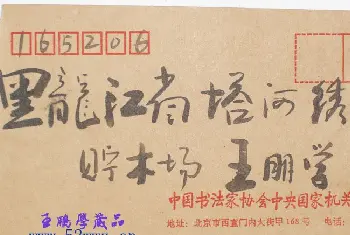 165206
黑龍江省塔河綉
贮木场 王朋学
中国书法家协会中央国家机关
王鵬學藏品
地址：北京市西直门内大街甲168号 电话：